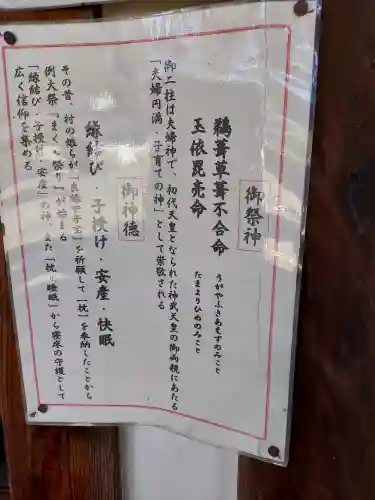 御祭神
鵜葺草葺不合命
うがやふきあえずのみこと
玉依毘売命
たまよりひめのみこと
御二柱は夫婦神で、初代天皇となられた神武天皇の御両親にあたる
「夫婦円満・子育ての神」として崇敬される
御神徳
縁結び・子授け・安産・快眠
その昔、村の娘らが「良縁や子宝」を祈願して「枕」を奉納したことから
例大祭「まくら祭り」が始まる
「縁結び・子授け・安産」の神、また「枕＝睡眠」から寝床の守護として
広く信仰を集める